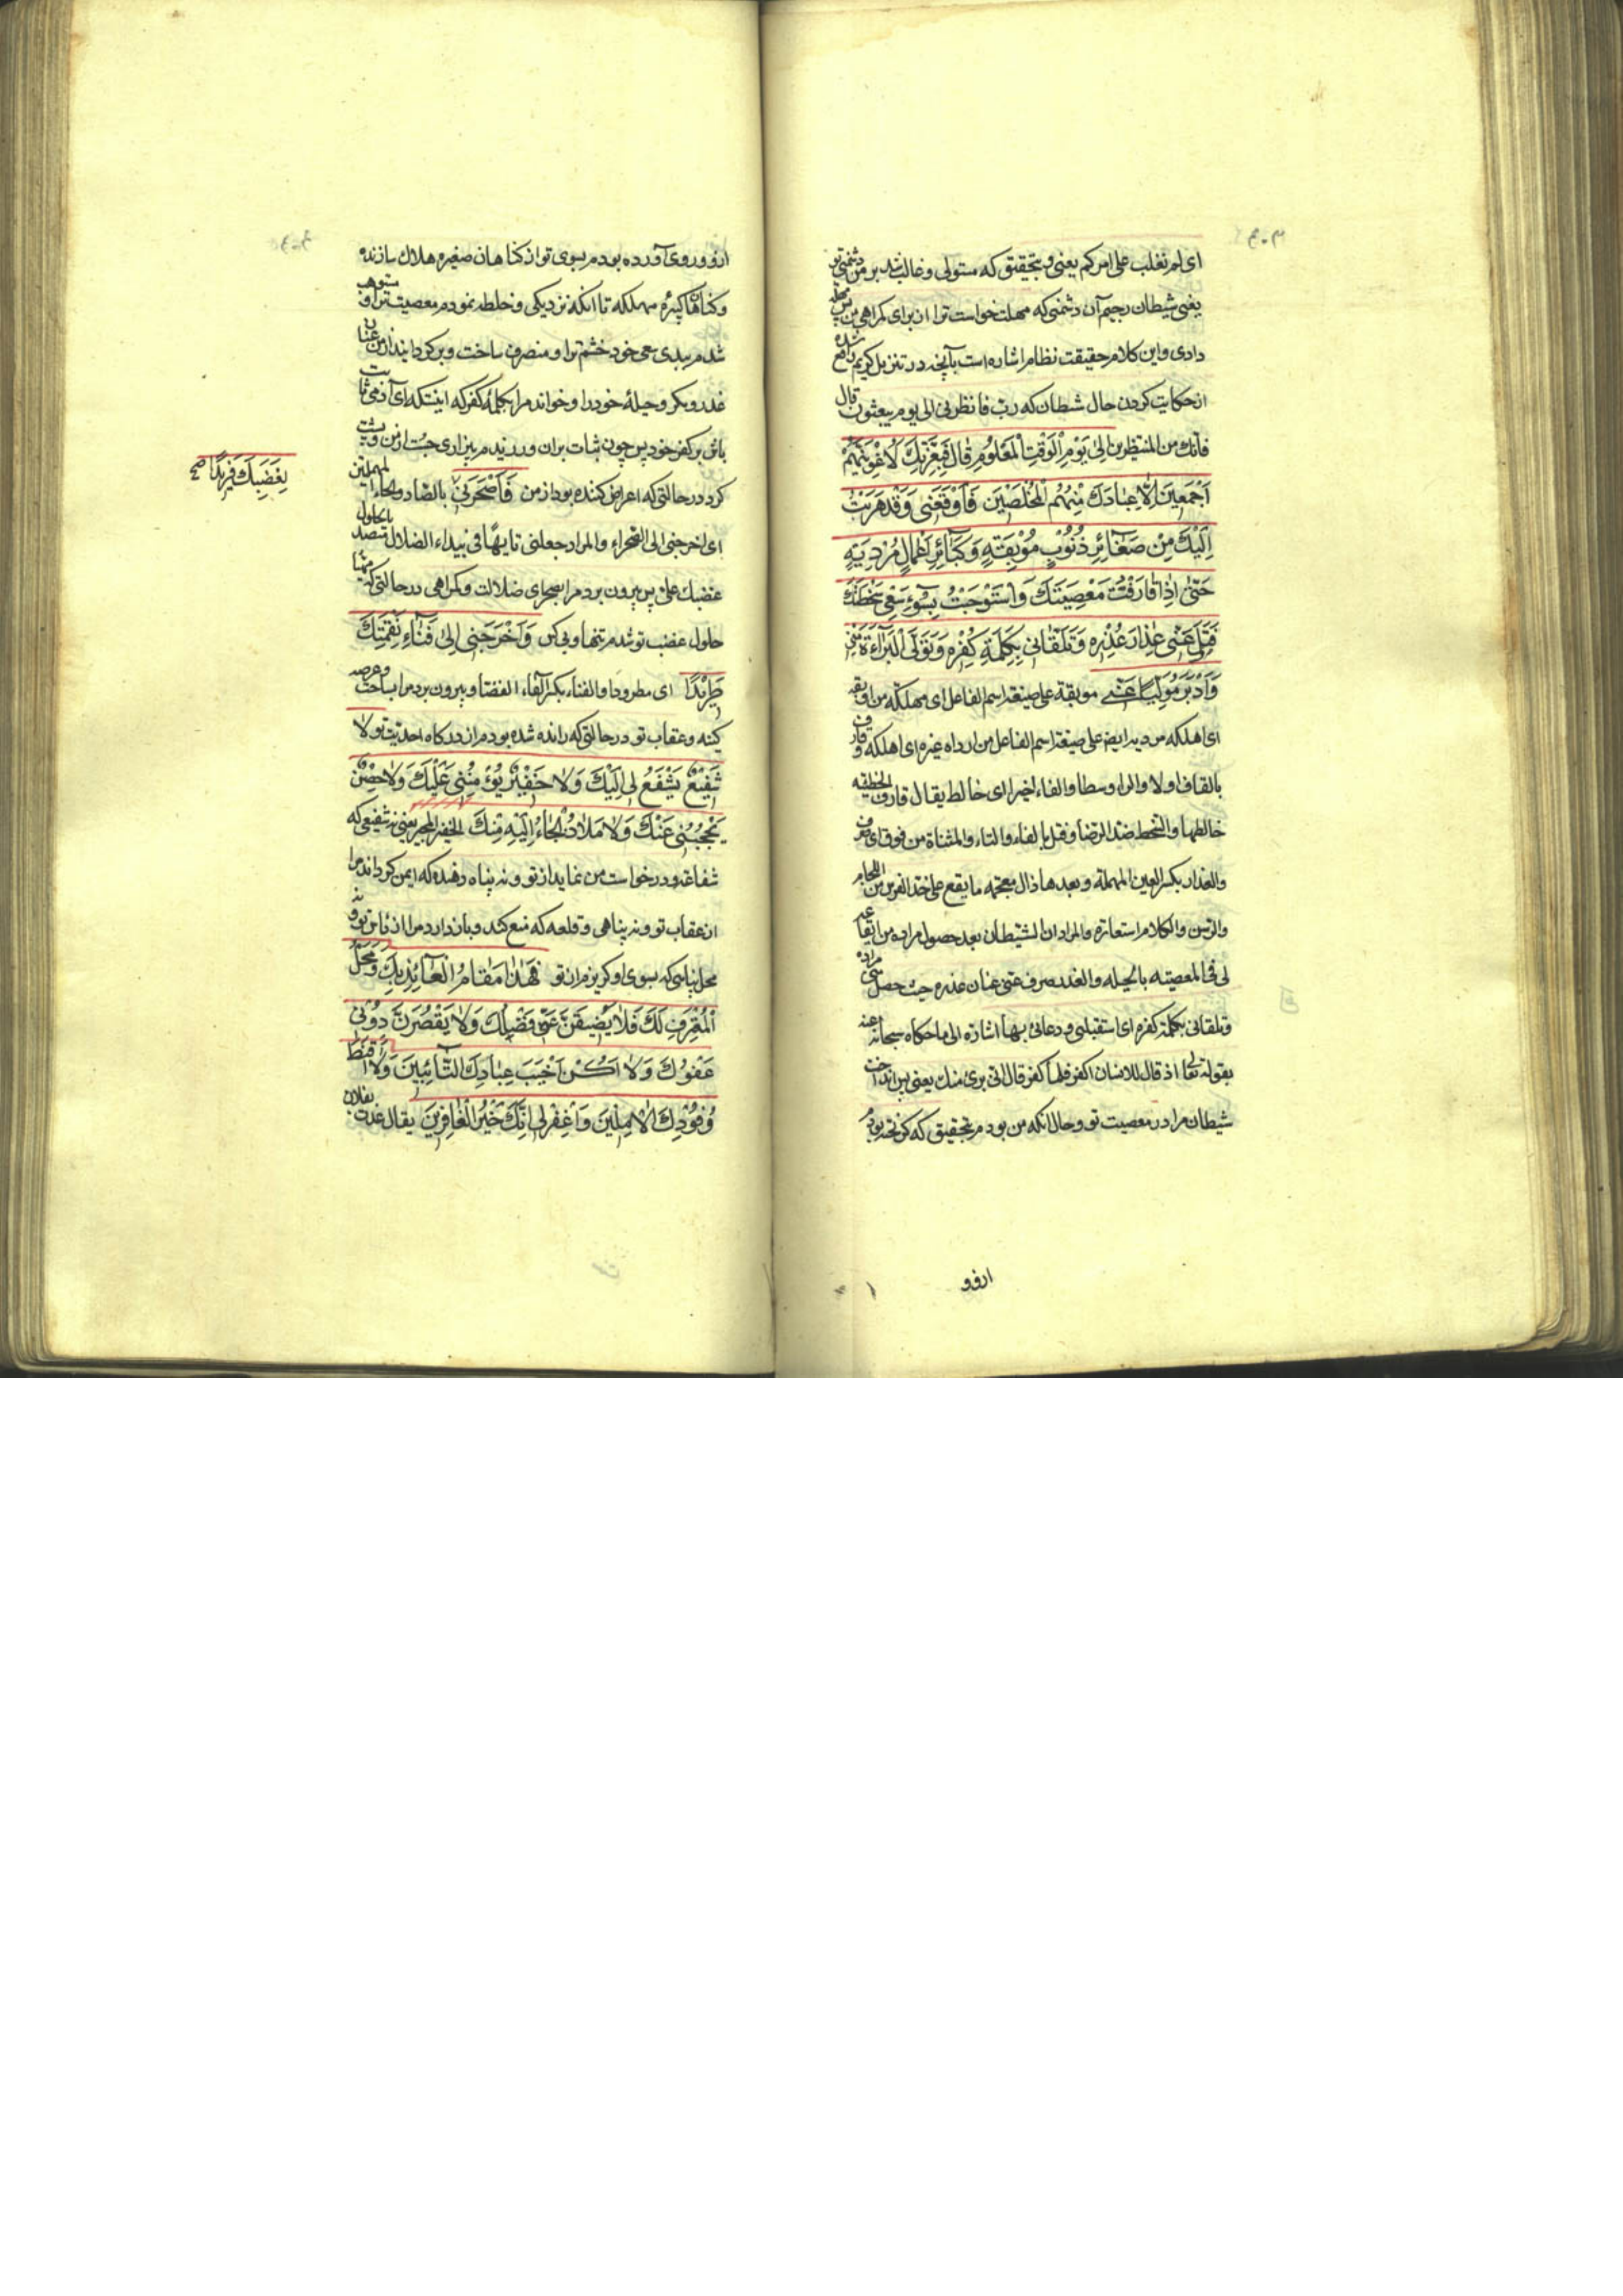 ای لم تغلب علی امرکم یعنی و بتحقیق که مستولی و غالب شد بر من دشمنی تو
یعنی شیطان رجیم آن دشمنی که مهلت خواست ترا از برای کمراهی من پس مهلت
دادی و این کلام حقیقت نظام اشاره است بآنچه در تنزیل کریم واقع شده
از حکایت کردن حال شیطان که رب فانظرنی الی یوم یبعثون قال
فانك من المنتظرین اِلیٰ یَوْمِ الْوَقْتِ الْمَعْلُومِ قٰالَ فَبِعِزَّتِكَ لَاُغْوِیَنَّهُمْ
اَجْمَعینَ اِلّٰا عِبٰادَكَ مِنْهُمُ الْمُخْلَصینَ فَاَوْقَعَنی وَقَدْ هَرَبْتُ
اِلَیْكَ مِنْ صَغٰائِرِ ذُنُوبٍ مُوبِقَةٍ وَكَبٰائِرِ اَعْمٰالٍ مُرْدِیَةٍ
حَتّٰی اِذٰا قٰارَفْتُ مَعْصِیَتَكَ وَاسْتَوْجَبْتُ بِسُوءِ سَعْیی سَخْطَتَكَ
فَتَلَ عَنّی عِذٰارَ غَدْرِهِ وَتَلَقّٰانی بِكَلِمَةِ كُفْرِهِ وَتَوَلَّی الْبَرٰاءَةَ مِنّی
وَاَدْبَرَ مُوَلِّیًا عَنّی موبقة علی صیغة اسم الفاعل ای مهلکه من اوبقه
ای اهلکه مردیه ایضا علی صیغة اسم الفاعل من ارداه غیره ای اهلکه و قارف
بالقاف اولا والراء وسطا والفاء اخیرا ای خالط یقال قارف الخطیئه
خالطها والسخط ضد الرضا وفتل بالفاء والتاء والمثناة من فوق ای صرف
والعذار بکسر العین المهملة وبعدها ذال معجمه ما یقع علی خد الفرس من اللجام
والرسن والکلام استعارة والمراد ان الشیطان بعد حصول مراده من ایقاعه
لی فی المعصیته بالحیله والغدر صرف عنی عنان غدره حیث حصل منی مراده
وتلقانی بکلمة کفره ای استقبلنی ودعانی بها اشارة الی ما حکاه سبحانه عنه
بقوله تعالی اذ قال للانسان اکفر فلما کفر قال انی بریء منك یعنی پس انداخت
شیطان مرا در معصیت تو و حال آنکه من بودم بتحقیق که کریخته بودم
ارفو
ازو و روی آورده بودم بسوی تو از کناهان صغیره هلاك سازنده
و کناهان کبیره مهلکه تا آنکه نزدیکی و خلطه نمودم معصیت ترا و مستوجب
شدم ببدی سعی خود خشم ترا و منصرف ساخت و بر کردانید از من عنان
غدر و مکر و حیلهٔ خود را و خواند مرا بکلمهٔ کفر که اینستکه ای آدمی ثابت
باش بر کفر خود پس چون ثبات بران ورزیدم بیزاری جست از من و پشت
کرد در حالتی که اعراض کننده بود از من فَاَصْحَرَنی بالصاد والحاء المهملتین
ای اخرجنی الی الصحراء والمراد جعلنی تایها فی بیداء الضلال متصدیا لحلول
غضبك علی پس بیرون برد مرا بصحرای ضلالت و کمراهی در حالتی که مهیا
حلول غضب تو شدم تنها و بی کس وَاَخْرَجَنی اِلیٰ فِنٰاءِ نَقِمَتِكَ
طَریدًا ای مطرودا والفناء بکسر الفاء الفضا و بیرون برد مرا بساحت و عرصه
کینه و عقاب تو در حالتی که رانده شده بودم از درکاه احدیت تو لا
شَفیعٌ یَشْفَعُ لی اِلَیْكَ وَلٰا خَفیرٌ یُؤْمِنُنی عَلَیْكَ وَلٰا حِصْنٌ
یَحْجُبُنی عَنْكَ وَلٰا مَلٰاذٌ اَلْجَاءُ اِلَیْهِ مِنْكَ الخفیر المجیر یعنی نه شفیعی که
شفاعت و درخواست من نماید از تو و نه پناه دهنده که ایمن کرداند مرا
از عقاب تو و نه پناهی و قلعه که منع کند و باز دارد مرا از تو و نه
محل پناهی که بسوی او کریزم از تو فَهٰذٰا مَقٰامُ الْعٰائِذِ بِكَ وَمَحَلُّ
الْمُعْتَرِفِ لَكَ فَلٰا یَضیقَنَّ عَنّی فَضْلُكَ وَلٰا یَقْصُرَنَّ دُونی
عَفْوُكَ وَلٰا اَكُنْ اَخْیَبَ عِبٰادِكَ التّٰائِبینَ وَلٰا اَقْنَطَ
وُفُودِكَ الْاٰمِلینَ وَاغْفِرْ لی اِنَّكَ خَیْرُ الْغٰافِرینَ یقال غدر بفلان
لِغَضَبِكَ فَریدًا صح